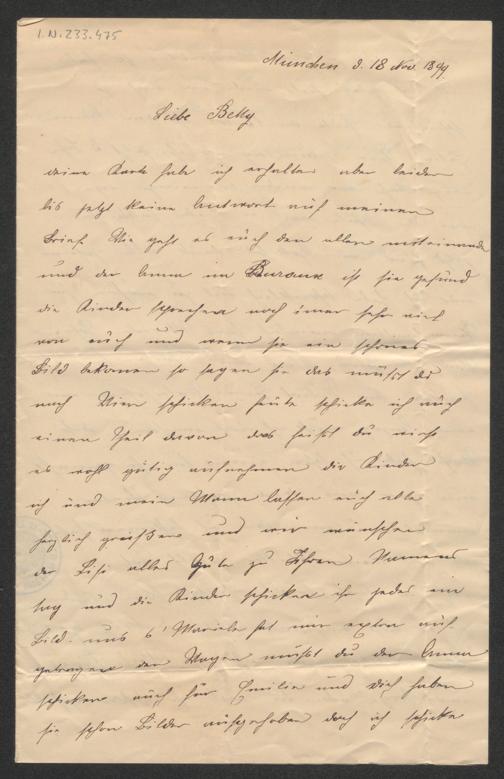 I.N. 233.475
München d. 18 Nov. 1899
Liebe Betty
deine Karte habe ich erhalten aber leider
bis jetzt keine Antwort auf meinen
Brief. Wie geht es euch den allen miteinander
und der Anna im Bureaux ist sie gesund
die Kinder sprechen noch imer sehr viel
von euch und wenn sie ein schönes
Bild bekomen so sagen sie das müßt du
nach Wien schicken heute schicke ich euch
einen Theil davon das heißt du wirst
es wohl gütig aufnehmen die Kinder
ich und mein Mann lassen euch alle
herzlich grüßen und wir wünschen
der Lisi alles Gute zu Ihrem Namens
tag und die Kinder schicken ihr jedes ein
Bild. uns s' Mariele hat mir extra auf-
getragen den Wagen müßt du der Anna
schicken auch für Emilie und dich haben
sie schon Bilder aufgehoben doch ich schicke